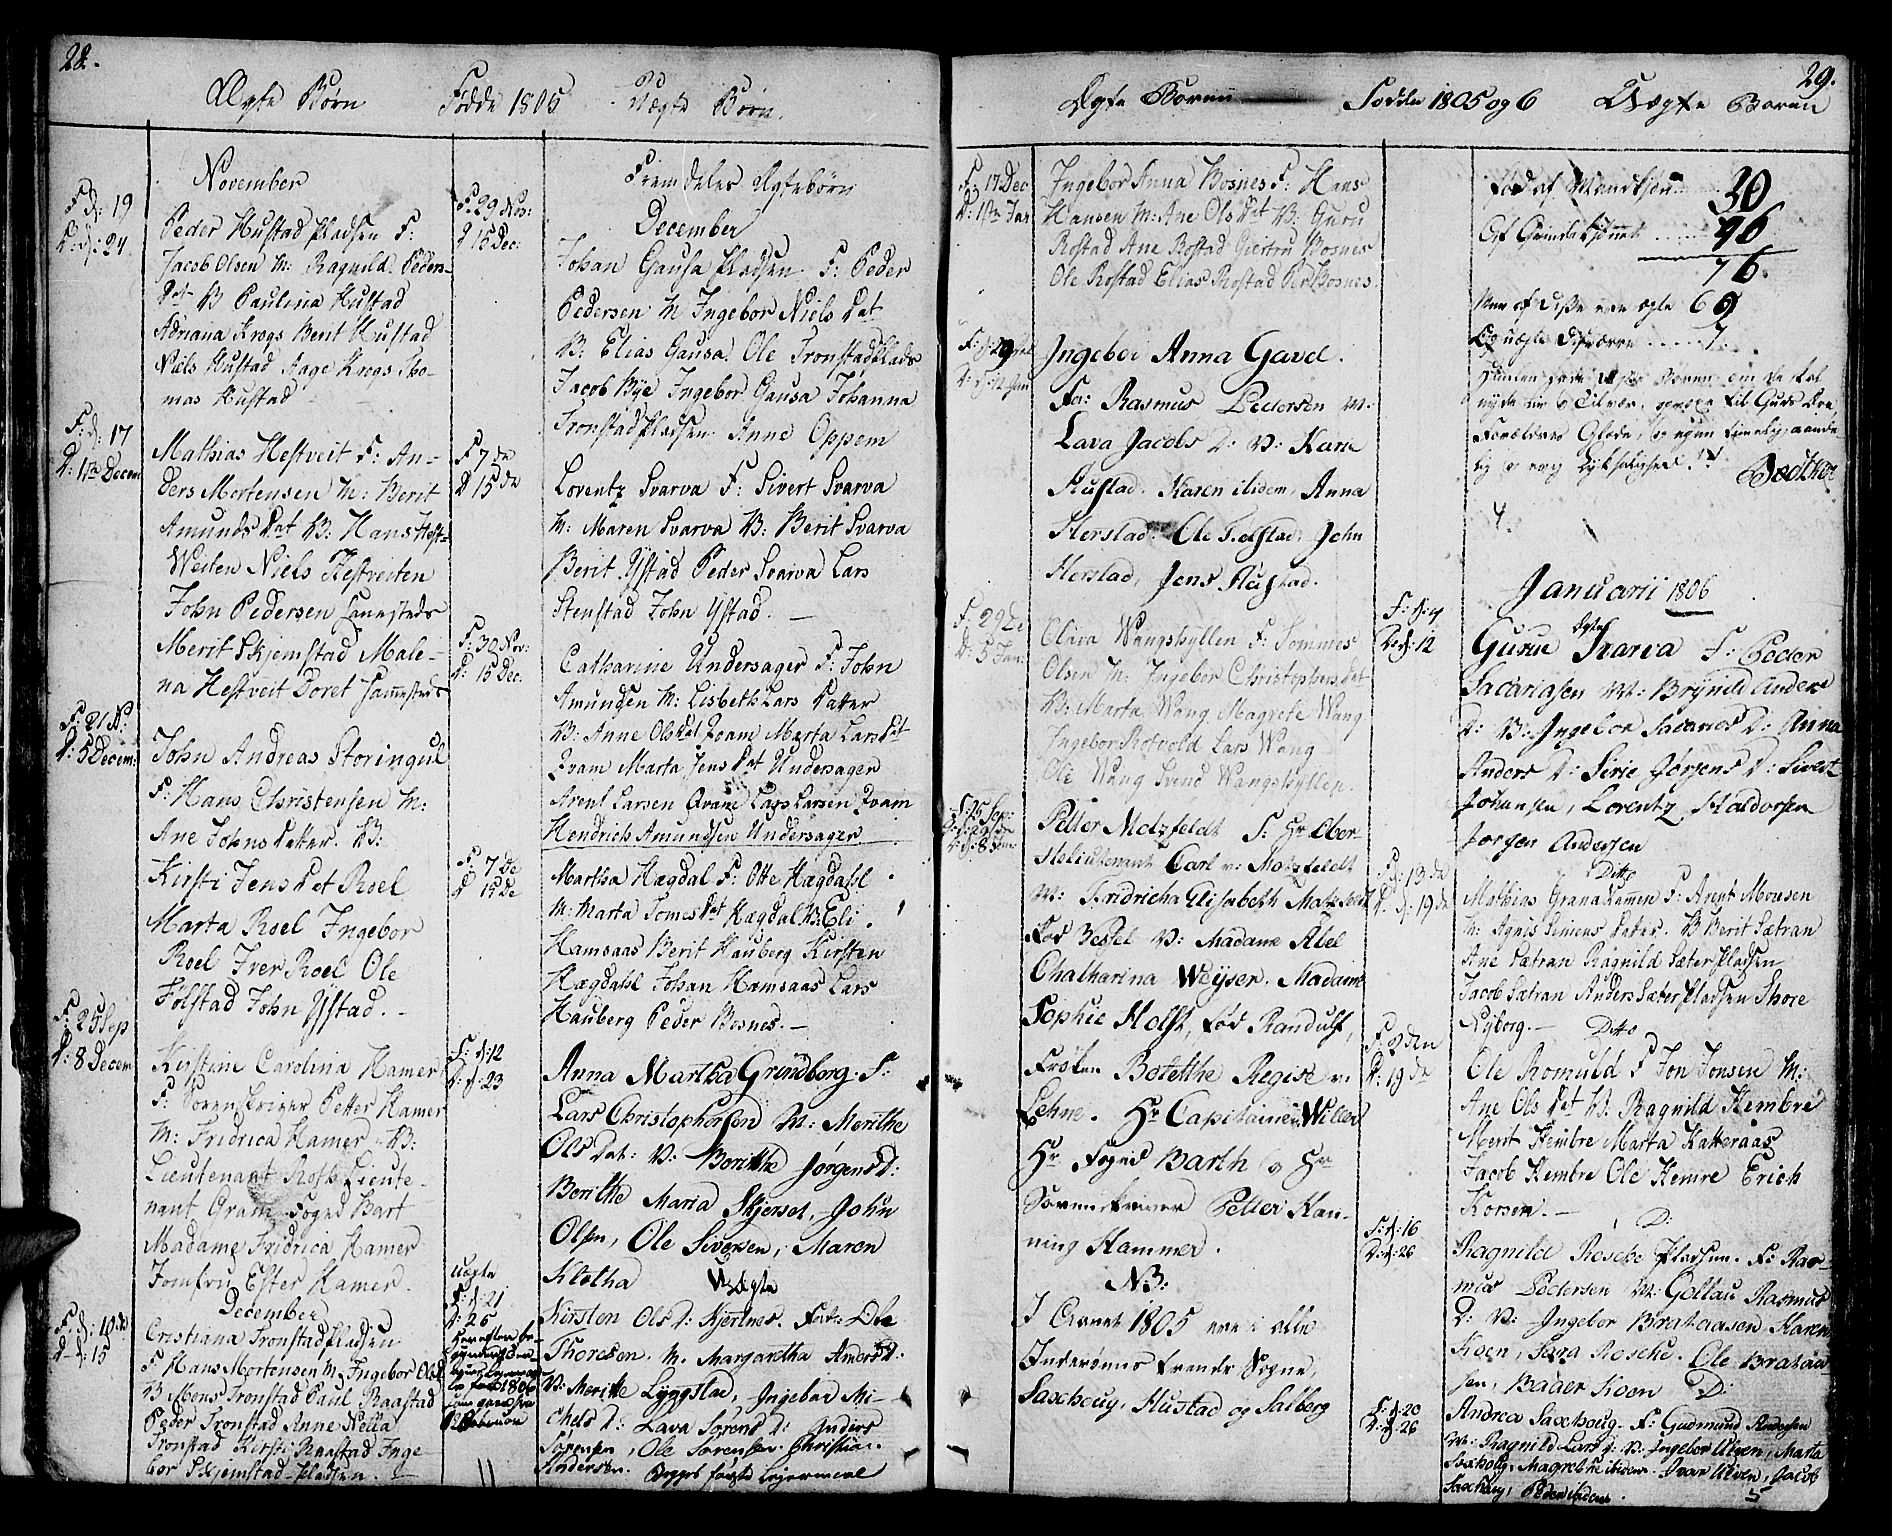 28.
Ægte Børn Fødde 1805 Uægte Børn.
November
F. d: 19
D. d: 24
Peder Hustad Pladsen F:
Jacob Olsen M: Ragnild Peders-
Dat B Paulina Hustad
Adriana Krogs Berit Hustad
Niels Hustad Aage Krogs Tho-
mas Hustad
F: d: 17
D: 1te Decem
Mathias Hestveit F: An-
ders Mortensen M: Berit
Amunds Dat B: Hans Hest-
Weiten Niels Hestveiten
John Pedersen sammesteds
Merit Skjemstad Male-
na Hestveit Doret sammesteds
F: 21 N:
D: 5 Decem:
John Andreas Storingul
F: Hans Christensen M:
Ane Johns Datter. B:
Kirsti Jens Dat Roel
Marta Roel Ingebor
Roel Iver Roel Ole
Følstad John Ystad.
F: 25 Sep
D: 8 Decem
Kirstine Carolina Hamer
F: Sorenskriver Petter Hamer
M: Fridrica Hamer B:
Lieutenant Roth Lieute-
nant Gram Foged Bart
Madame Fridrica Hamer
Jomfru Ester Hamer.
December
F: d: 10 de
D. d: 15
Cristiana Tronstad Pladsen
F Hans Mortensen M. Ingebor Ols d
B Mons Tronstad Paul Raastad
Peder Tronstad Anne Nella
Tronstad Kirsti Raastad Inge
bor Skjemstad Pladsen.
Fremdeles Ægtebørn
December
F: 29 Nov:
D 15 Dec:
Johan Gausa Pladsen F: Peder
Pedersen M Ingebor Niels Dat
B: Elias Gausa. Ole Tronstad Plads
Jacob Bye Ingebor Gausa Johanna
Tronstad Pladsen Anne Oppem
F 7 de
D 15 de
Lorentz Svarva F: Sivert Svarva
M: Maren Svarva B: Berit Svarva
Berit Ystad Peder Svarva Lars
Stenstad John Ystad.
F: 30 Nov:
D: 15 Dec:
Catharine Undersager F: John
Amundsen M: Lisbeth Lars Datter
B: Anne Olsdat Qvam Marta Larsdat
Qvam Marta Jens Dat Undersager
Arent Larsen Qvam Lars Larsen Qvam
Hendrich Amundsen Undersager.
F: 7 De
D 15 De
Martha Hægdal F: Otte Hægdahl
M: Marta Tomesdat Hægdal B: Eli
Hamsaas Berit Hauberg Kirsten
Hægdahl Johan Hamsaas Lars
Hauberg Peder Bosnes.
F: d: 12
D: d: 23
Anna Martha Grindberg. F:
Lars Christophersen M: Merithe
Ols Dat: V: Berithe Jørgens D:
Berithe Maria Skjerset, John
Olsen, Ole Siversen, Maren
Kletha Uægte
uægte
F: d: 21
D: 26
Kirsten Ols D: Kjertnes. Fat: Ole
Thoresen. M. Margaretha Anders D.
V: Meritte Lyngstad, Ingebor Mi-
chels D: Lava Sørens D: Anders
Sørensen, Ole Sørensen. Christian
Andersen. Begges første Leiermaal
29.
Ægte Børen Fødde 1805 og 6 Uægte Børen
F: 17 Dec
D: 1ste Jan
Ingebor Anna Bosnes F: Hans
Hansen M: Ane Ols Dat B: Guru
Rostad Ane Rostad Giertru Bosnes
Ole Rostad Elias Rostad Per Bosnes.
F: d: 29
D: d: 12 Jan
Ingebor Anna Gavel.
Fa: Rasmus Pedersen M:
Lava Jacobs D: V: Karen
Hustad. Karen ibidem, Anna
Herstad. Ole Tolstad, John
Herstad, Jens Hustad.
F: 29 De
D: 5 Jan:
Olava Wangshyllen F: Tommes
Olsen M: Ingebor Christophers dat
B: Marta Wang Magrete Wang
Ingebor Rotvold Lars Wang
Ole Wang Svend Wangshyllen.
F: 15 Sep:
Petter Motzfeldt F: Hr Ober-
stelieutenant Carl v: Motzfeldt
M: Fridricha Elisabeth Motzfeldt
fød Bessel V: Madame Abel
Chatharina Weyser, Madame
Sophie Holst, fød Randulf,
Frøken Botetthe Regise v:
Lehne. Hr Capitainen Willer
Hr Foged Barth og Hr
Sorenskriver Petter Han-
ning Hammer.
NB:
I Aaret 1805 ere i alle
Inderøens trende Sogne,
Saxhoug, Hustad og Salberg
fød af Mandkjøn 30
Af Qvindekjønet ...... 46
76
Men af disse ere ægte 69
Og uægte desværre ..... 7.
Forældres Glæde, og egen timelig, aande
lig og evig Lyksalighed.
Bødtker
4.
Januarii 1806
F: d: 4
D: d: 12
Ægte
Guru Svarva F: Peder
Sacariasen M: Brynild Anders
D: V: Ingebor Sacarias D: Anna
Anders D: Sirie Jørgens D: Sivert
Johansen, Lorentz Haldorsen
Jørgen Andersen
Ditto
F: d: 13 de
D: d: 19 de
Mathias Grana Kamen F: Arent Monsen
M: Agnis Simens Datter. B Berit Sætran
Ane Sætran Ragnild Sæter Pladsen
Jacob Sætran Anders Sæter Pladsen Thore
Nyborg. Ditto
D: 19 de
Ole Romuld F Jon Jonsen M:
Ane Ols Dat B. Ragnild Hembre
Merit Hembre Marta Katteraas
Jacob Hembre Ole Hemre Erich
Korsen. D:
F: d: 16
D: d: 26
Ragnild Rosche Pladsen. F: Ras-
mus Pedersen M: Gollau Rasmus
D: V: Ingebor Brataasen Karen
Koen, Sara Rosche. Ole Brataa-
sen, Baoer Koen D:
F: d: 20
D: d: 26
Andrea Saxhoug. F: Gudmund Andersen
M: Ragnild Lars D: V: Ingebor Ulven, Marta
Saxhoug, Magrethe ibidem. Ivar Ulven, Jacob
Saxhoug, Peder ibidem.
5